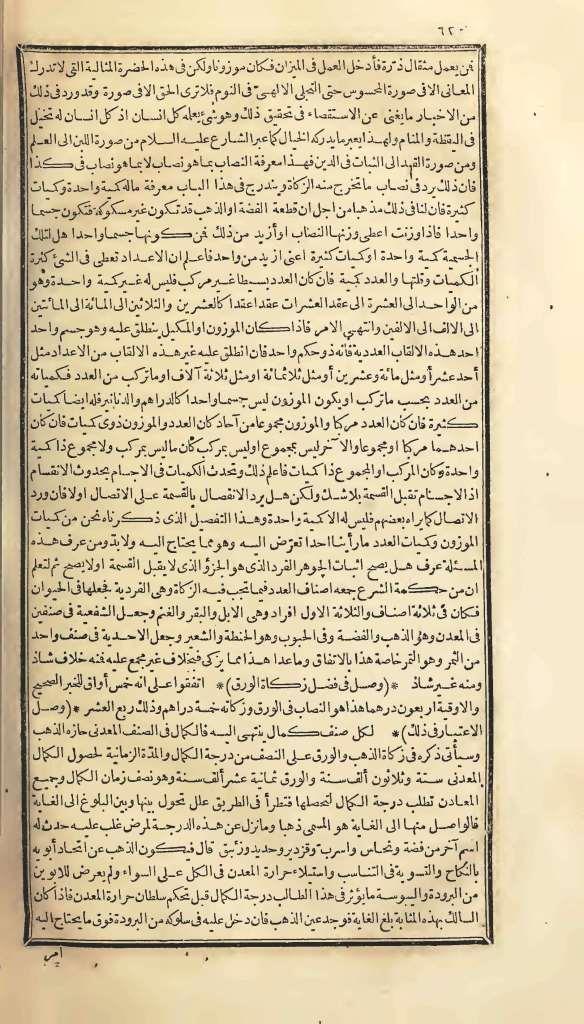 ٦٢٠
فمن يعمل مثقال ذرة فأدخل العمل فى الميزان فكان موزونا ولكن فى هذه الحضرة المثالية التى لا تدرك
المعانى الا فى صورة المحسوس حتى التجلى الالهى فى النوم فلا ترى الحق الا فى صورة وقد ورد فى ذلك
من الاخبار ما يغنى عن الاستقصاء فى تحقيق ذلك وهو شئ يعلمه كل انسان اذ كل انسان له تخيل
فى اليقظة والمنام ولهذا يعبر ما يدركه الخيال كما عبر الشارع عليه السلام من صورة اللبن الى العلم
ومن صورة القيد الى الثبات فى الدين فهذا معرفة النصاب بما هو نصاب لا بما هو نصاب فى كذا
فان ذلك يرد فى نصاب ما تخرج منه الزكاة ويندرج فى هذا الباب معرفة ماله كمية واحدة وكميات
كثيرة فان لنا فى ذلك مذهبا من اجل ان قطعة الفضة او الذهب قد تكون غير مسكوكة فتكون جسما
واحدا فاذا وزنت اعطى وزنها النصاب او أزيد من ذلك فمن كونها جسما واحدا هل لتلك
الجسمية كمية واحدة او كميات كثيرة اعنى ازيد من واحد فاعلم ان الاعداد تعطى فى الشئ كثرة
الكميات وقلتها والعدد كمية فان كان العدد بسيطا غير مركب فليس له غير كمية واحدة وهو
من الواحد الى العشرة الى عقد العشرات عقدا عقدا كالعشرين والثلاثين الى المائة الى المائتين
الى الالف الى الالفين وانتهى الامر فاذا كان الموزون او المكيل ينطلق عليه وهو جسم واحد
احد هذه الالقاب العددية فانه ذو حكم واحد فان انطلق عليه غير هذه الالقاب من الاعداد مثل
أحد عشر أو مثل مائة وعشرين أو مثل ثلاثمائة او مثل ثلاثة آلاف او ما تركب من العدد فكمياته
من العدد بحسب ما تركب او يكون الموزون ليس جسما واحدا كالدراهم والدنانير فله ايضا كميات
كثيرة فان كان العدد مركبا والموزون مجموعا من آحاد كان العدد والموزون ذوى كميات فان كان
احدهما مركبا او مجموعا والآخر ليس بمجموع او ليس بمركب كان ما ليس بمركب ولا مجموع ذا كمية
واحدة وكان المركب او المجموع ذا كميات فاعلم ذلك وتحدث الكميات فى الاجسام بحدوث الانقسام
اذ الاجسام تقبل القسمة بلا شك ولكن هل يرد الانفصال بالقسمة على الاتصال اولا فان ورد
الاتصال كما يراه بعضهم فليس له الا كمية واحدة وهذا التفصيل الذى ذكرناه نحن من كميات
الموزون وكميات العدد ما رأينا احدا تعرض اليه وهو مما يحتاج اليه ولا بد ومن عرف هذه
المسئلة عرف هل يصح اثبات الجوهر الفرد الذى هو الجزؤ الذى لا يقبل القسمة اولا يصح ثم لتعلم
ان من حكمة الشرع جمعه اصناف العدد فيما تجب فيه الزكاة وهى الفردية فجعلها فى الحيوان
فكان فى ثلاثة اصناف والثلاثة الاول افراد وهى الابل والبقر والغنم وجعل الشفعية فى صنفين
فى المعدن وهو الذهب والفضة وفى الحبوب وهو الحنطة والشعير وجعل الاحدية فى صنف واحد
من الثمر وهو التمر خاصة هذا بالاتفاق وما عدا هذا مما يزكى فبخلاف غير مجمع عليه فمنه خلاف شاذ
ومنه غير شاذ *(وصل فى فضل زكاة الورق)* اتفقوا على انه خمس أواق للخبر الصحيح
والاوقية اربعون درهما هذا هو النصاب فى الورق وزكاته خمسة دراهم وذلك ربع العشر *(وصل
الاعتبار فى ذلك)* لكل صنف كمال ينتهى اليه فالكمال فى الصنف المعدنى حازه الذهب
وسيأتى ذكره فى زكاة الذهب والورق على النصف من درجة الكمال والمدة الزمانية لحصول الكمال
المعدنى ستة وثلاثون ألف سنة والورق ثمانية عشر ألف سنة وهو نصف زمان الكمال وجميع
المعادن تطلب درجة الكمال لتحصلها فتطرأ فى الطريق علل تحول بينها وبين البلوغ الى الغاية
فالواصل منها الى الغاية هو المسمى ذهبا وما نزل عن هذه الدرجة لمرض غلب عليه حدث له
اسم آخر من فضة ونحاس واسرب وقزدير وحديد وزئبق قال فيكون الذهب عن اتحاد أبويه
بالنكاح والتسوية فى التناسب واستيلاء حرارة المعدن فى الكل على السواء ولم يعرض للابوين
من البرودة واليبوسة ما يؤثر فى هذا الطالب درجة الكمال قبل تحكم سلطان حرارة المعدن فاذا كان
السالك بهذه المثابة بلغ الغاية فوجد عين الذهب فان دخل عليه فى سلوكه من البرودة فوق ما يحتاج اليه